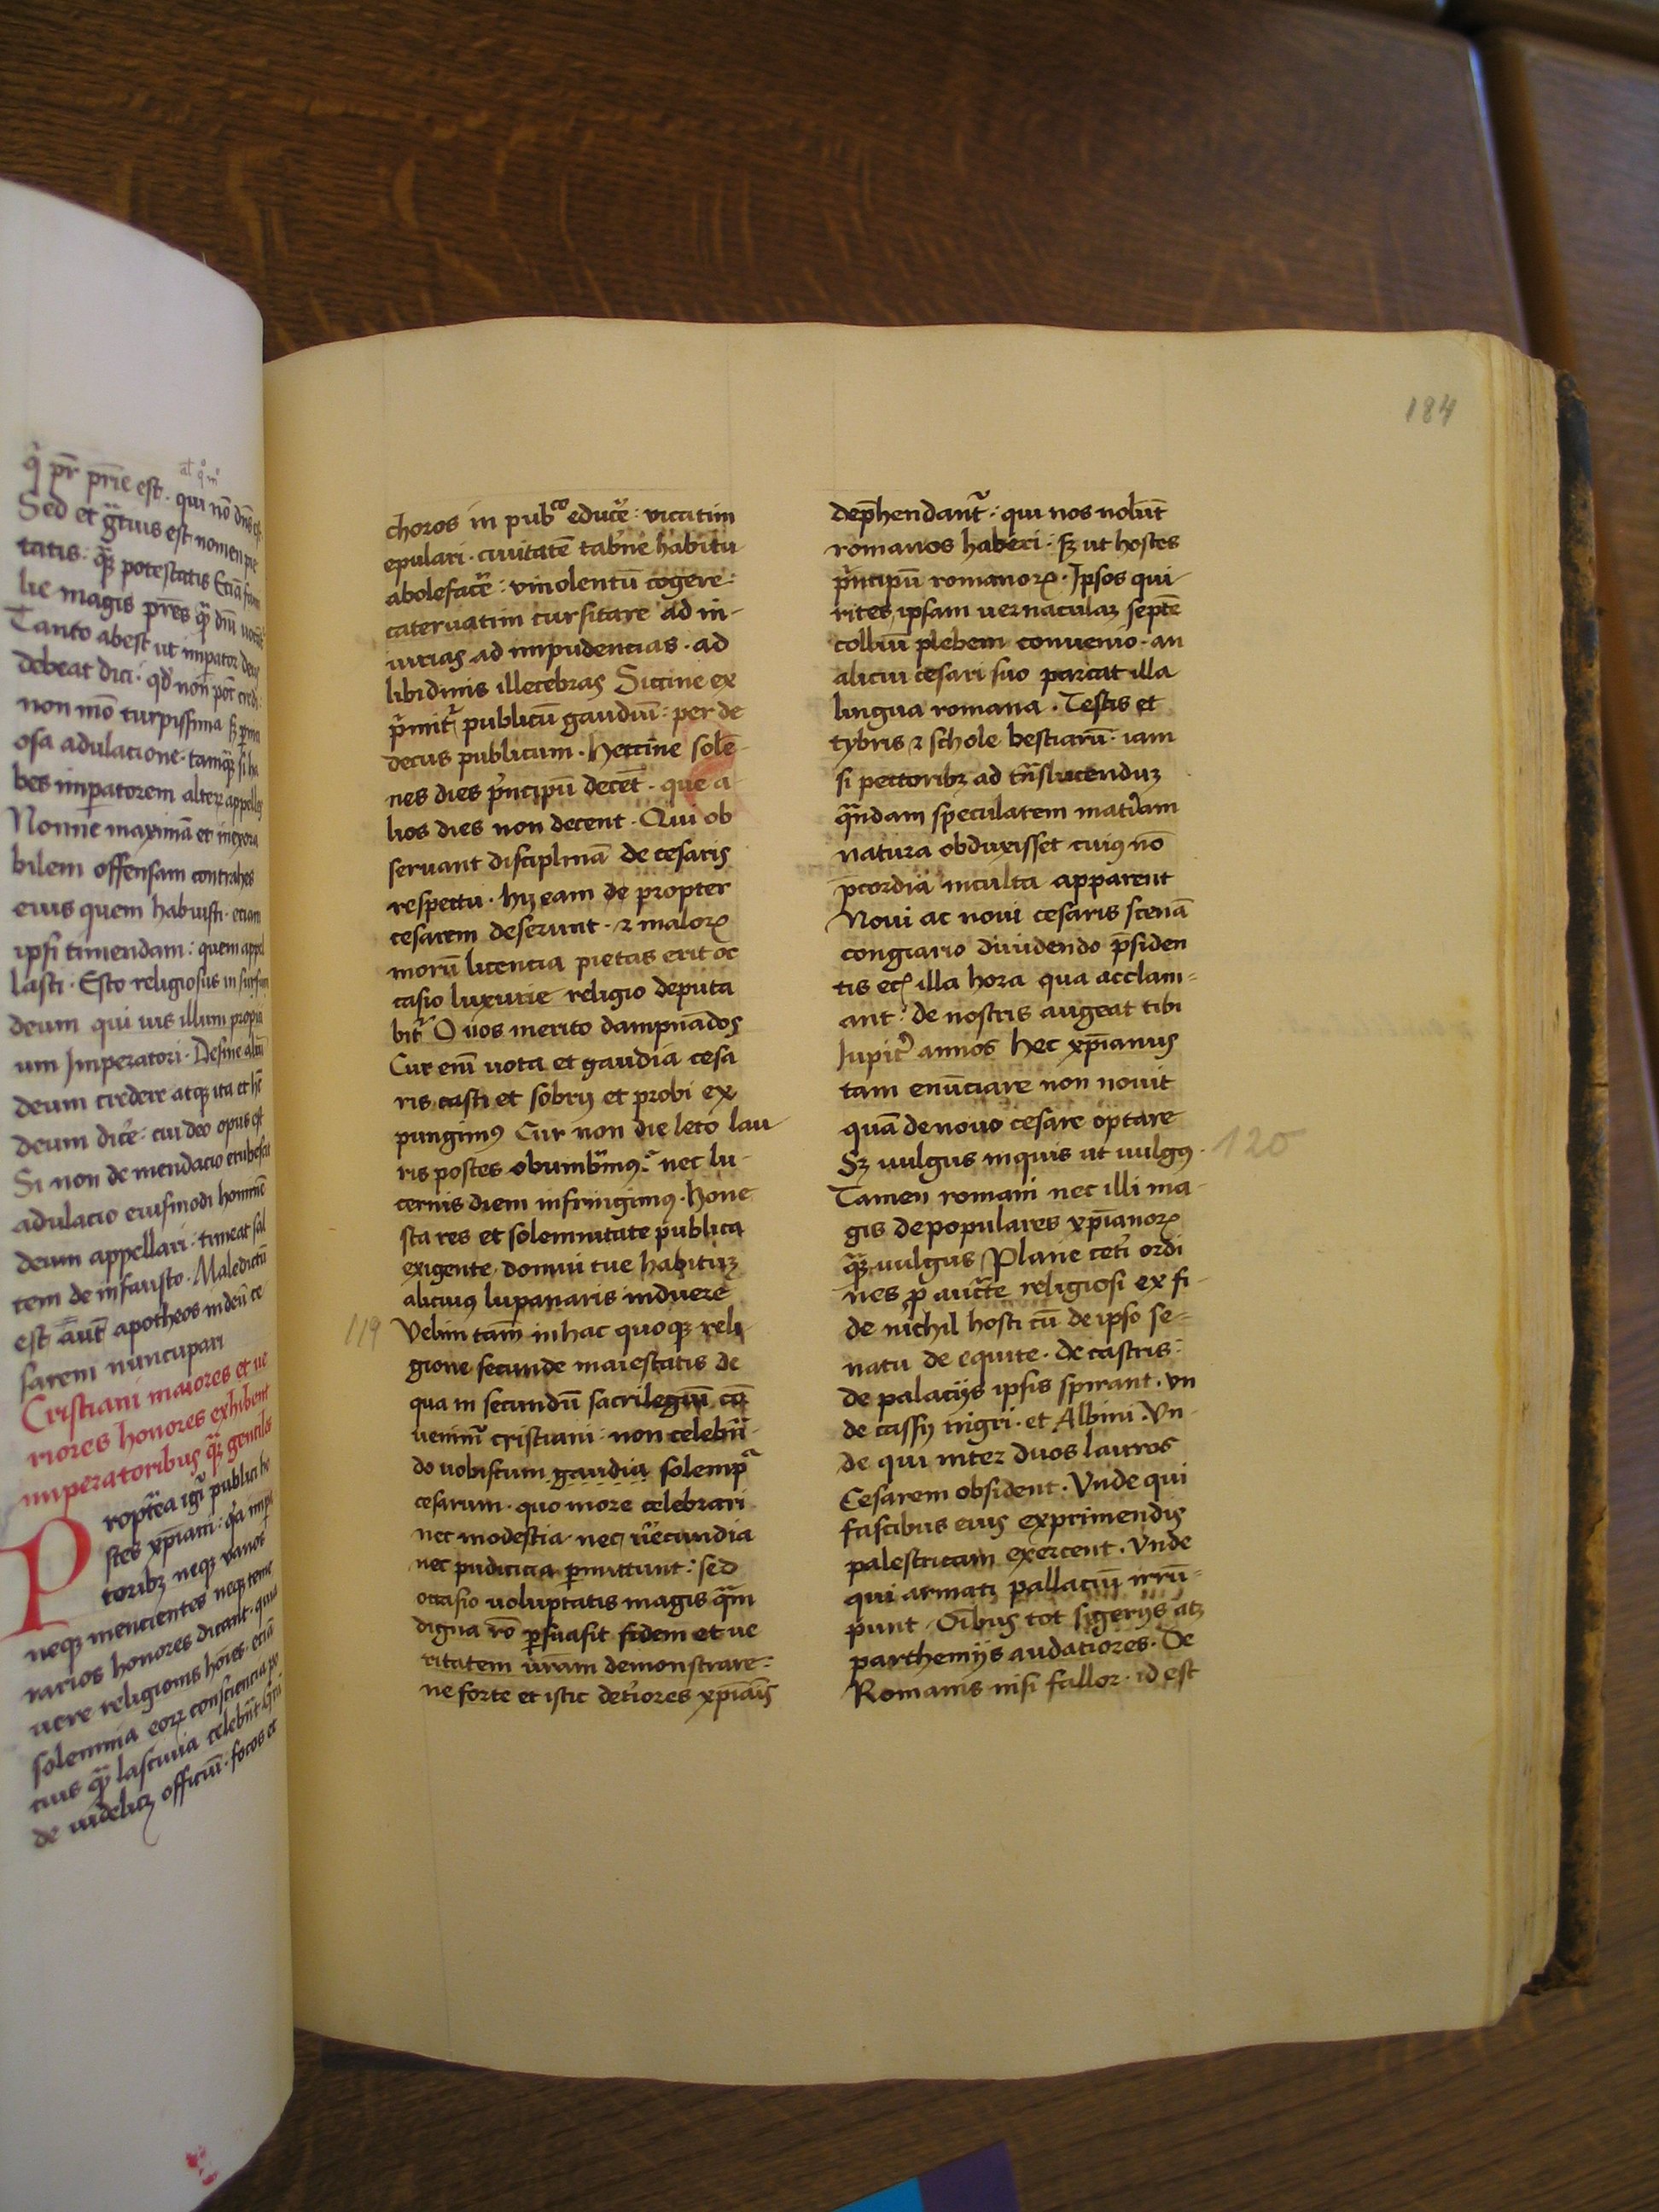 q̄ pr̄ prīe est · qui nō dn̄s est
Sed et gr̄cius est nomen pie
tatis : qua̅ꝫ potestatis Eciā fami
lie magis pr̄es qua̅ꝫ dn̄i
Tanto abest ut impator deus
debeat dici · qd' non pōt credi
non mō turpissima sꝫ
osa adulacione · tamqua̅ꝫ si ha
bes imp̄atorem alteꝝ appelles
Nonne maximā et inexora
bilem offensam contrahes
eius quem habuisti · eciam
ipsi timendam : quem appel
lasti · Esto religiosus in
deum qui uis illum propici
um Jmperatori · Desine aliū
deum credere atqꝫ ita et hūc
deum dic̄e : cui deo opus est
Si non de mendacio erubescit
adulacio eiusmodi hominē
deum appellari : timeat sal
tem de infausto · Maledictū
est ān̄ apotheos in deū ce
sarem nuncupari
Cristiani maiores et ve
riores honores exhibent
imperatoribus qua̅ꝫ gentiles
Propt̄ea igr̄ publici ho
stes xp̄iani : q̄a impa
toribꝫ neqꝫ vanos
neqꝫ mencientes neqꝫ teme
rarios honores dicant · quia
uere religionis hoīes · eciā
solemnia eoꝝ consciencia po
cius qua̅ꝫ lasciuia celebrāt
de uidelicꝫ officiū : focos et
184
choros in pubᶜᵒ educ̄e : vicatim
epulari · ciuitatē tab̄ne habitu
abolefac̄e : vinolentū cogere :
cateruatim cursitare ad in-
iurias ad impudencias · ad
libidinis illecebras Siccine ex
p̄mit̄ publicū gaudiū : per de
decus publicum · heccine sole-
nes dies p̄ncipū decēt · que a
lios dies non decent · Qui ob
seruant disciplinā de cesaris
respectu · hij eam de propter
cesarem deserunt · ⁊ maloꝝ
morū licencia pietas erit oc
casio luxurie religio deputa
bit̄ O uos merito dampnādos
Cur enī uota et gaudia cesa
ris casti et sobrij et probi ex
pungimꝰ Cur non die leto lau
ris postes obumbramꝰ : nec lu-
cernis diem infringimꝰ · hone
sta res et solemnitate publica
exigente domui tue habitūꝫ
alicuiꝰ lupanaris induere
119
Velim tam̄ in hac quoqꝫ reli
gione secunde maiestatis de
qua in secundū sacrilegiū cō
uenim̄ cristiani : non celebrā
do uobiscum gaudia solempᵃ
cesarum · quo more celebrari
nec modestia nec ūecundia
nec pudicicia p̄mittunt : sed
occasio uoluptatis magis qua̅m
digna rō p̄suasit fidem et ue
ritatem ūram demonstrare :
ne forte et istic det̄iores xp̄ianis
dep̄hendant̄ : qui nos nolūt
romanos haberi : sꝫ ut hostes
p̄ncipū romanoꝝ · Jpsos qui
rites ipsam uernaculaꝫ septē
colliū plebem conuenio · an
alicui cesari suo parcat illa
lingua romana · Testis et
tybris ⁊ schole bestiarū · iam
si pectoribꝫ ad tn̄slucenduꝫ
qua̅ndam specularem mat̄iam
natura obduxisset cuiꝰ nō
p̄cordia inculta apparent
Noui ac noui cesaris scenā
congiario diuidendo p̄siden
tis ecꝭ illa hora qua acclam-
ant : de nostris augeat tibi
Jupit̄ annos hec xp̄ianus
tam enūciare non nouit
quā de nouo cesare optare
Sꝫ uulgus inquis ut uulgꝰ ·
120
Tamen romani nec illi ma
gis depopulares xp̄ianoꝝ
qua̅ꝫ uulgus Plane cet̄i ordi
nes p̄ auct̄te religiosi ex fi
de nichil hosti cū de ipso se=
natu de equite · de castris :
de palacijs ipsis spirant · vn
de cassij nigri · et Albini · Vn
de qui inter duos lauros
Cesarem obsident · Vnde qui
fascibus eius exprimendis
palestricam exercent · Vnde
qui armati pallaciū irrū=
punt · Oībus tot sigerijs atꝫ
parthemijs audaciores · De
Romanis nisi fallor · id est